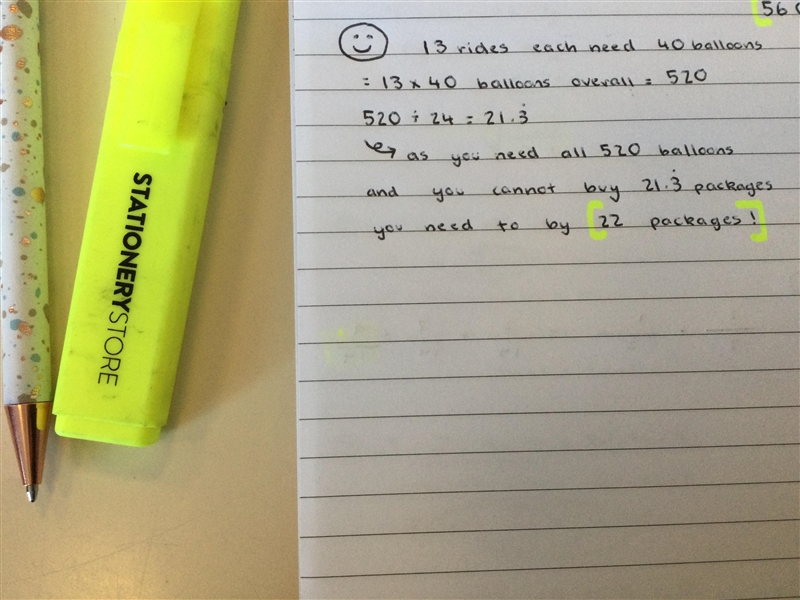 [56
13 rides each need 40 balloons
= 13 x 40 balloons overall = 520
520 ÷ 24 = 21.3̇
↳ as you need all 520 balloons
and you cannot buy 21.3̇ packages
you need to by [22 packages!]
STATIONERYSTORE